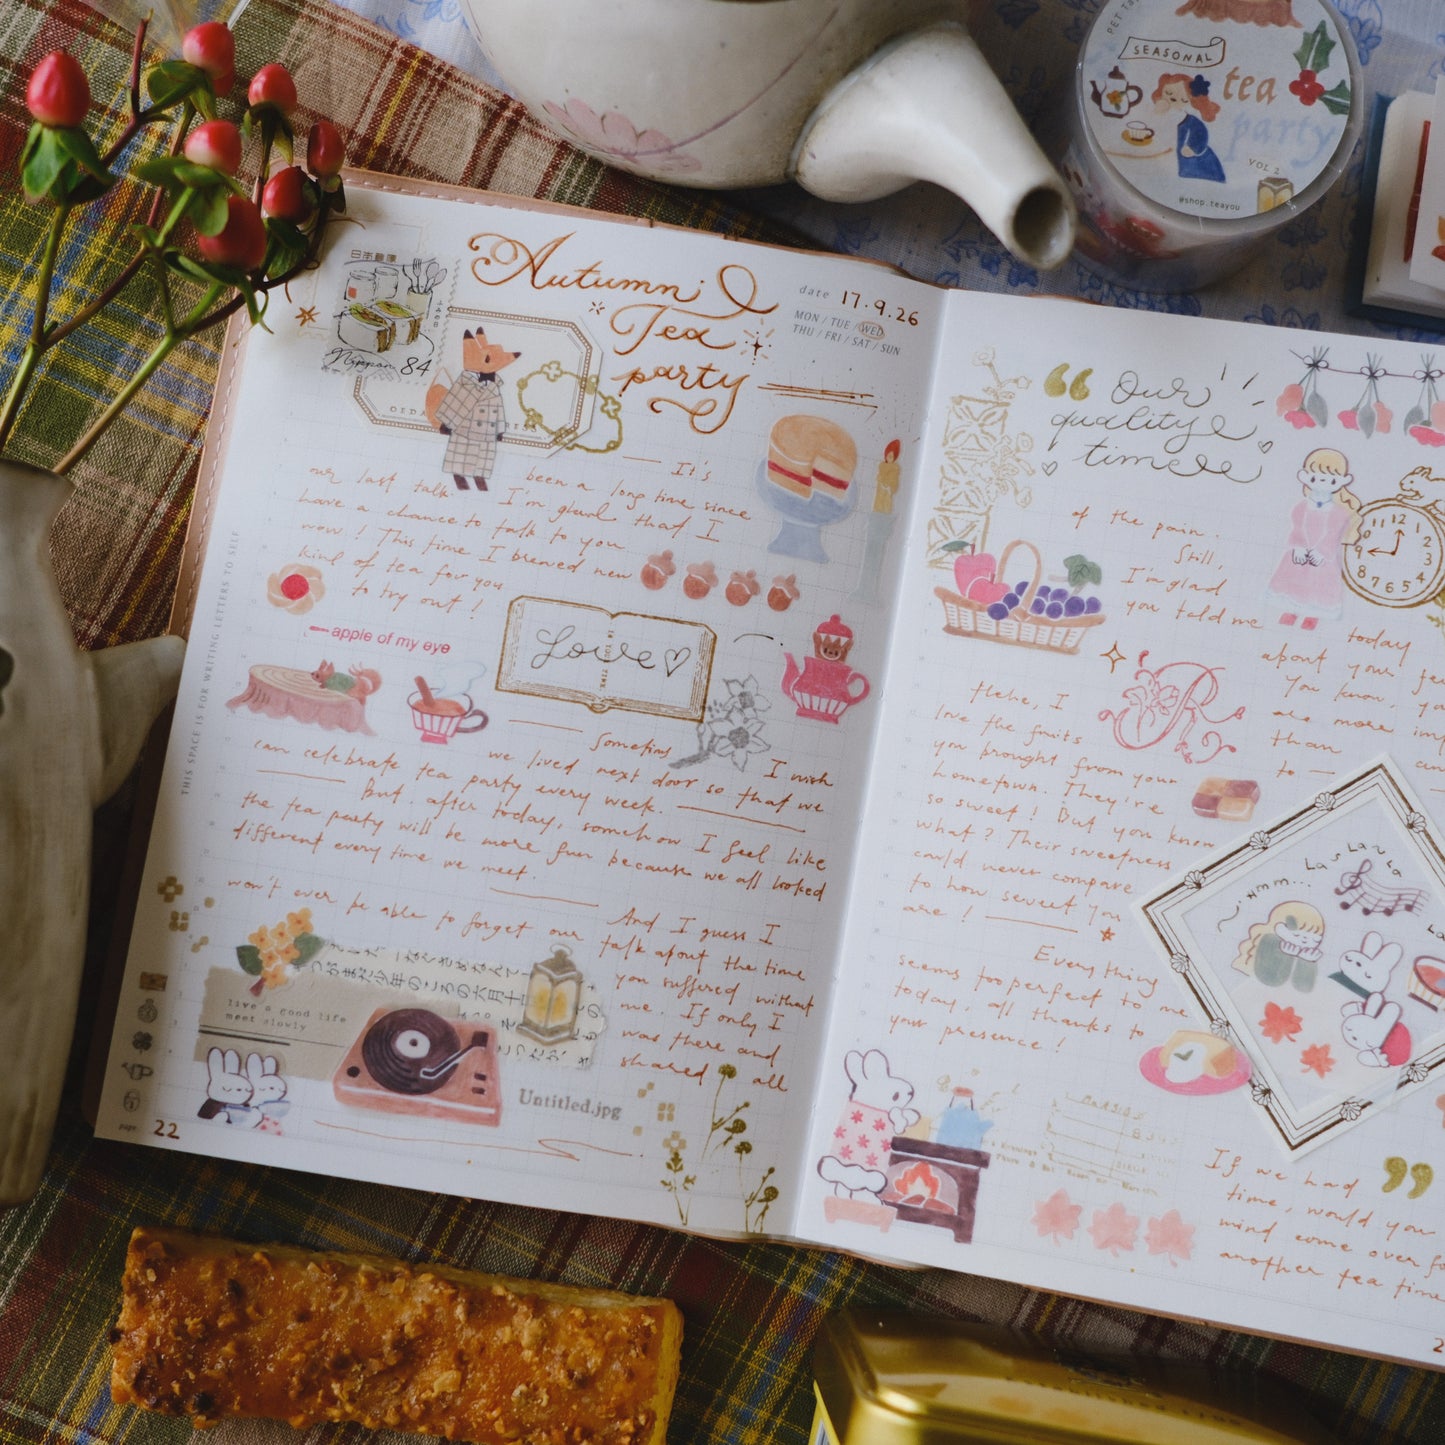 PET Ta
SEASONAL
tea
party
VOL 2
@shop.teayou
日本郵便
Nippon 84
Autumn
Tea
party
date 17.9.26
MON / TUE / WED
THU / FRI / SAT / SUN
It's
been a long time since
our last talk. I'm glad that I
have a chance to talk to you
now! This time I brewed new
kind of tea for you
to try out!
apple of my eye
Love
Sometimes I wish
we lived next door so that we
can celebrate tea party every week.
But, after today, somehow I feel like
the tea party will be more fun because we all looked
different every time we meet.
And I guess I
won't ever be able to forget our
talk about the time
you suffered without
me. If only I
was there and
shared all
live a good life
meet slowly
Untitled.jpg
THIS SPACE IS FOR WRITING LETTERS TO SELF
page. 22
“ Our
quality
time
of the pain.
Still,
I'm glad
you told me
today
about your
You know,
are more
than
to
12
1
2
3
4
5
6
7
8
9
10
11
Hehe, I
love the fruits
you brought from your
hometown. They're
so sweet! But you know
what? Their sweetness
could never compare
to how sweet you
are!
R
Everything
seems too perfect to me
today, all thanks to
your presence!
La La La La
Hmm...
If we had
time, would you
mind come over
another tea time
”